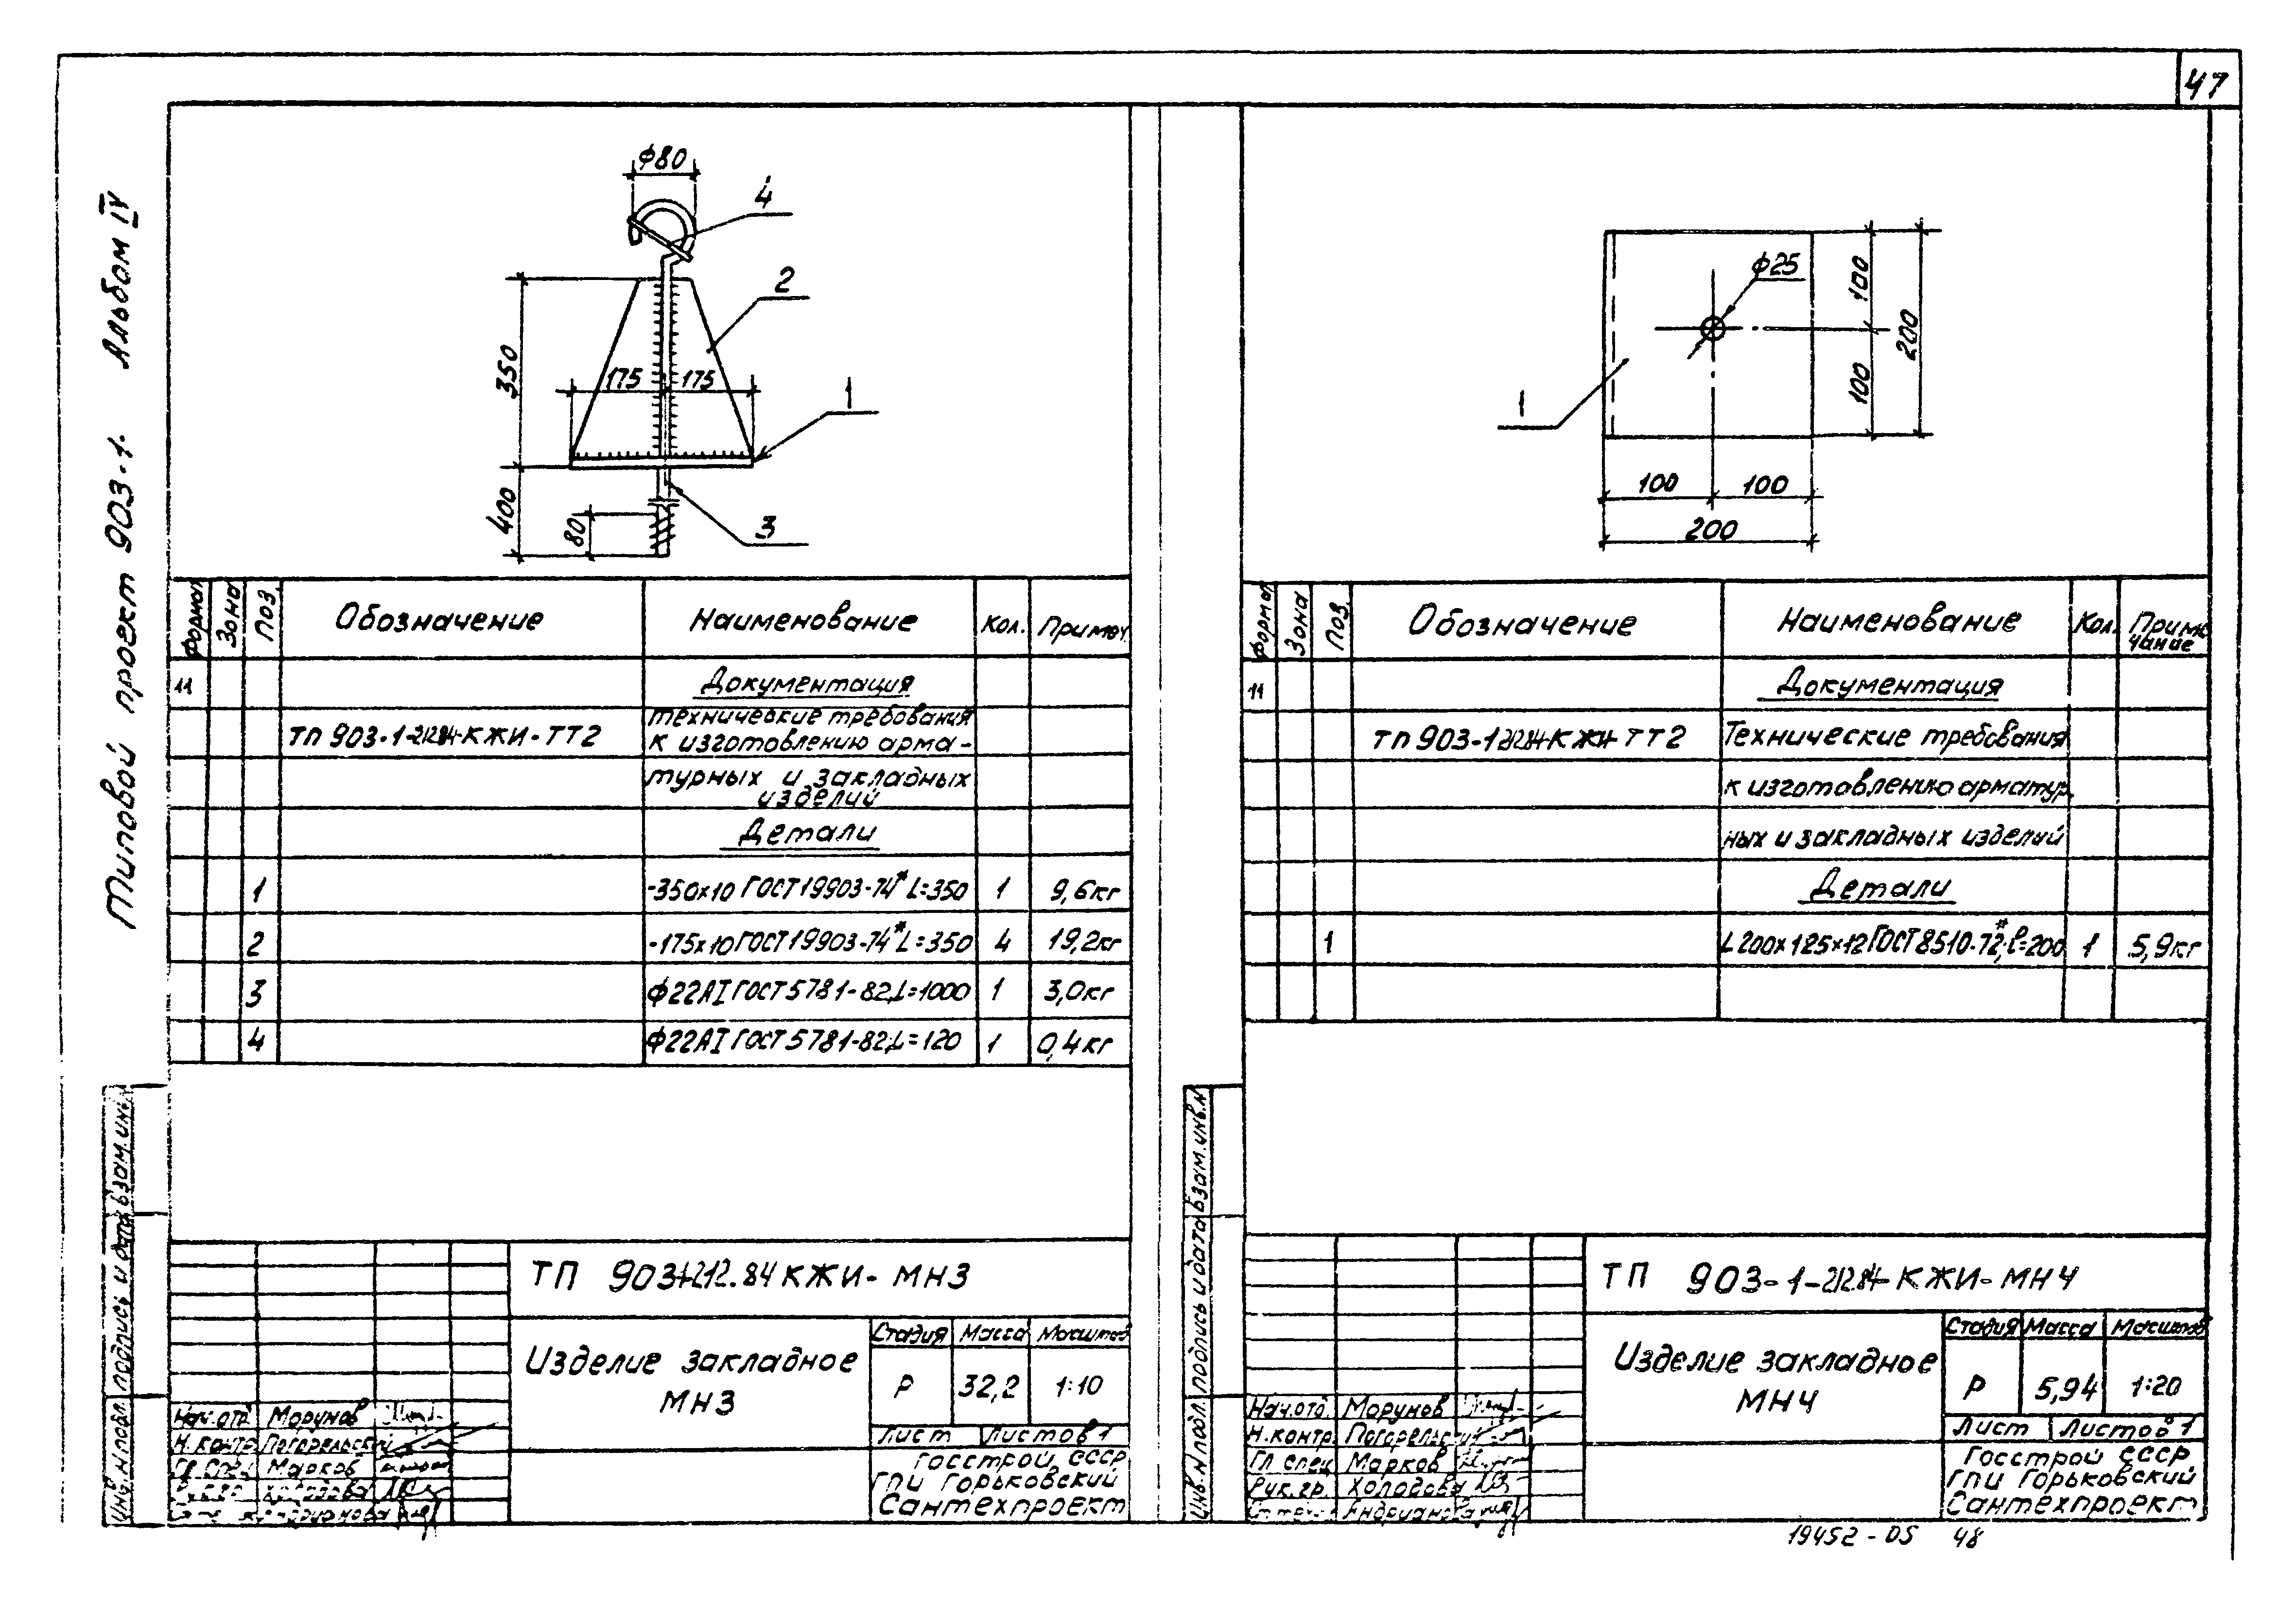 47
Типовой проект 903-1- Альбом IV
ф80
4
2
350
175
175
1
400
80
3
Формат
Зона
Поз.
Обозначение
Наименование
Кол.
Примеч.
11
Документация
ТП 903-1-212.84-КЖИ-ТТ2
технические требования
к изготовлению арма-
турных и закладных
изделий
Детали
1 -350х10 ГОСТ 19903-74* L=350 1 9,6кг
2 -175х10 ГОСТ 19903-74* L=350 4 19,2кг
3 ф22АI ГОСТ 5781-82, L=1000 1 3,0кг
4 ф22АI ГОСТ 5781-82, L=120 1 0,4кг
Взам. инв.
Подпись и дата
Инв. N подл.
ТП 903-1-212.84 КЖИ- МН3
Изделие закладное
МН3
Стадия Масса Масштаб
Р 32,2 1:10
Лист Листов 1
Госстрой СССР
ГПИ Горьковский
Сантехпроект
Нач.отд Морунов
Н.контр Погорельский
Гл.спец Марков
Холодова
ф25
100
200
100
1
100 100
200
Формат
Зона
Поз.
Обозначение
Наименование
Кол.
Приме
чание
11
Документация
ТП 903-1-212.84-КЖИ-ТТ2
Технические требования
к изготовлению арматур.
ных и закладных изделий
Детали
1 L200х125х12 ГОСТ 8510-72*, ℓ=200 1 5,9кг
Взам. инв. N
Подпись и дата
Инв. N подл.
ТП 903-1-212.84-КЖИ-МН4
Изделие закладное
МН4
Стадия Масса Масштаб
Р 5,94 1:20
Лист Листов 1
Госстрой СССР
ГПИ Горьковский
Сантехпроект
Нач.отд. Морунов
Н.контр. Погорельский
Гл спец Марков
Рук.гр. Холодова
19452-05 48